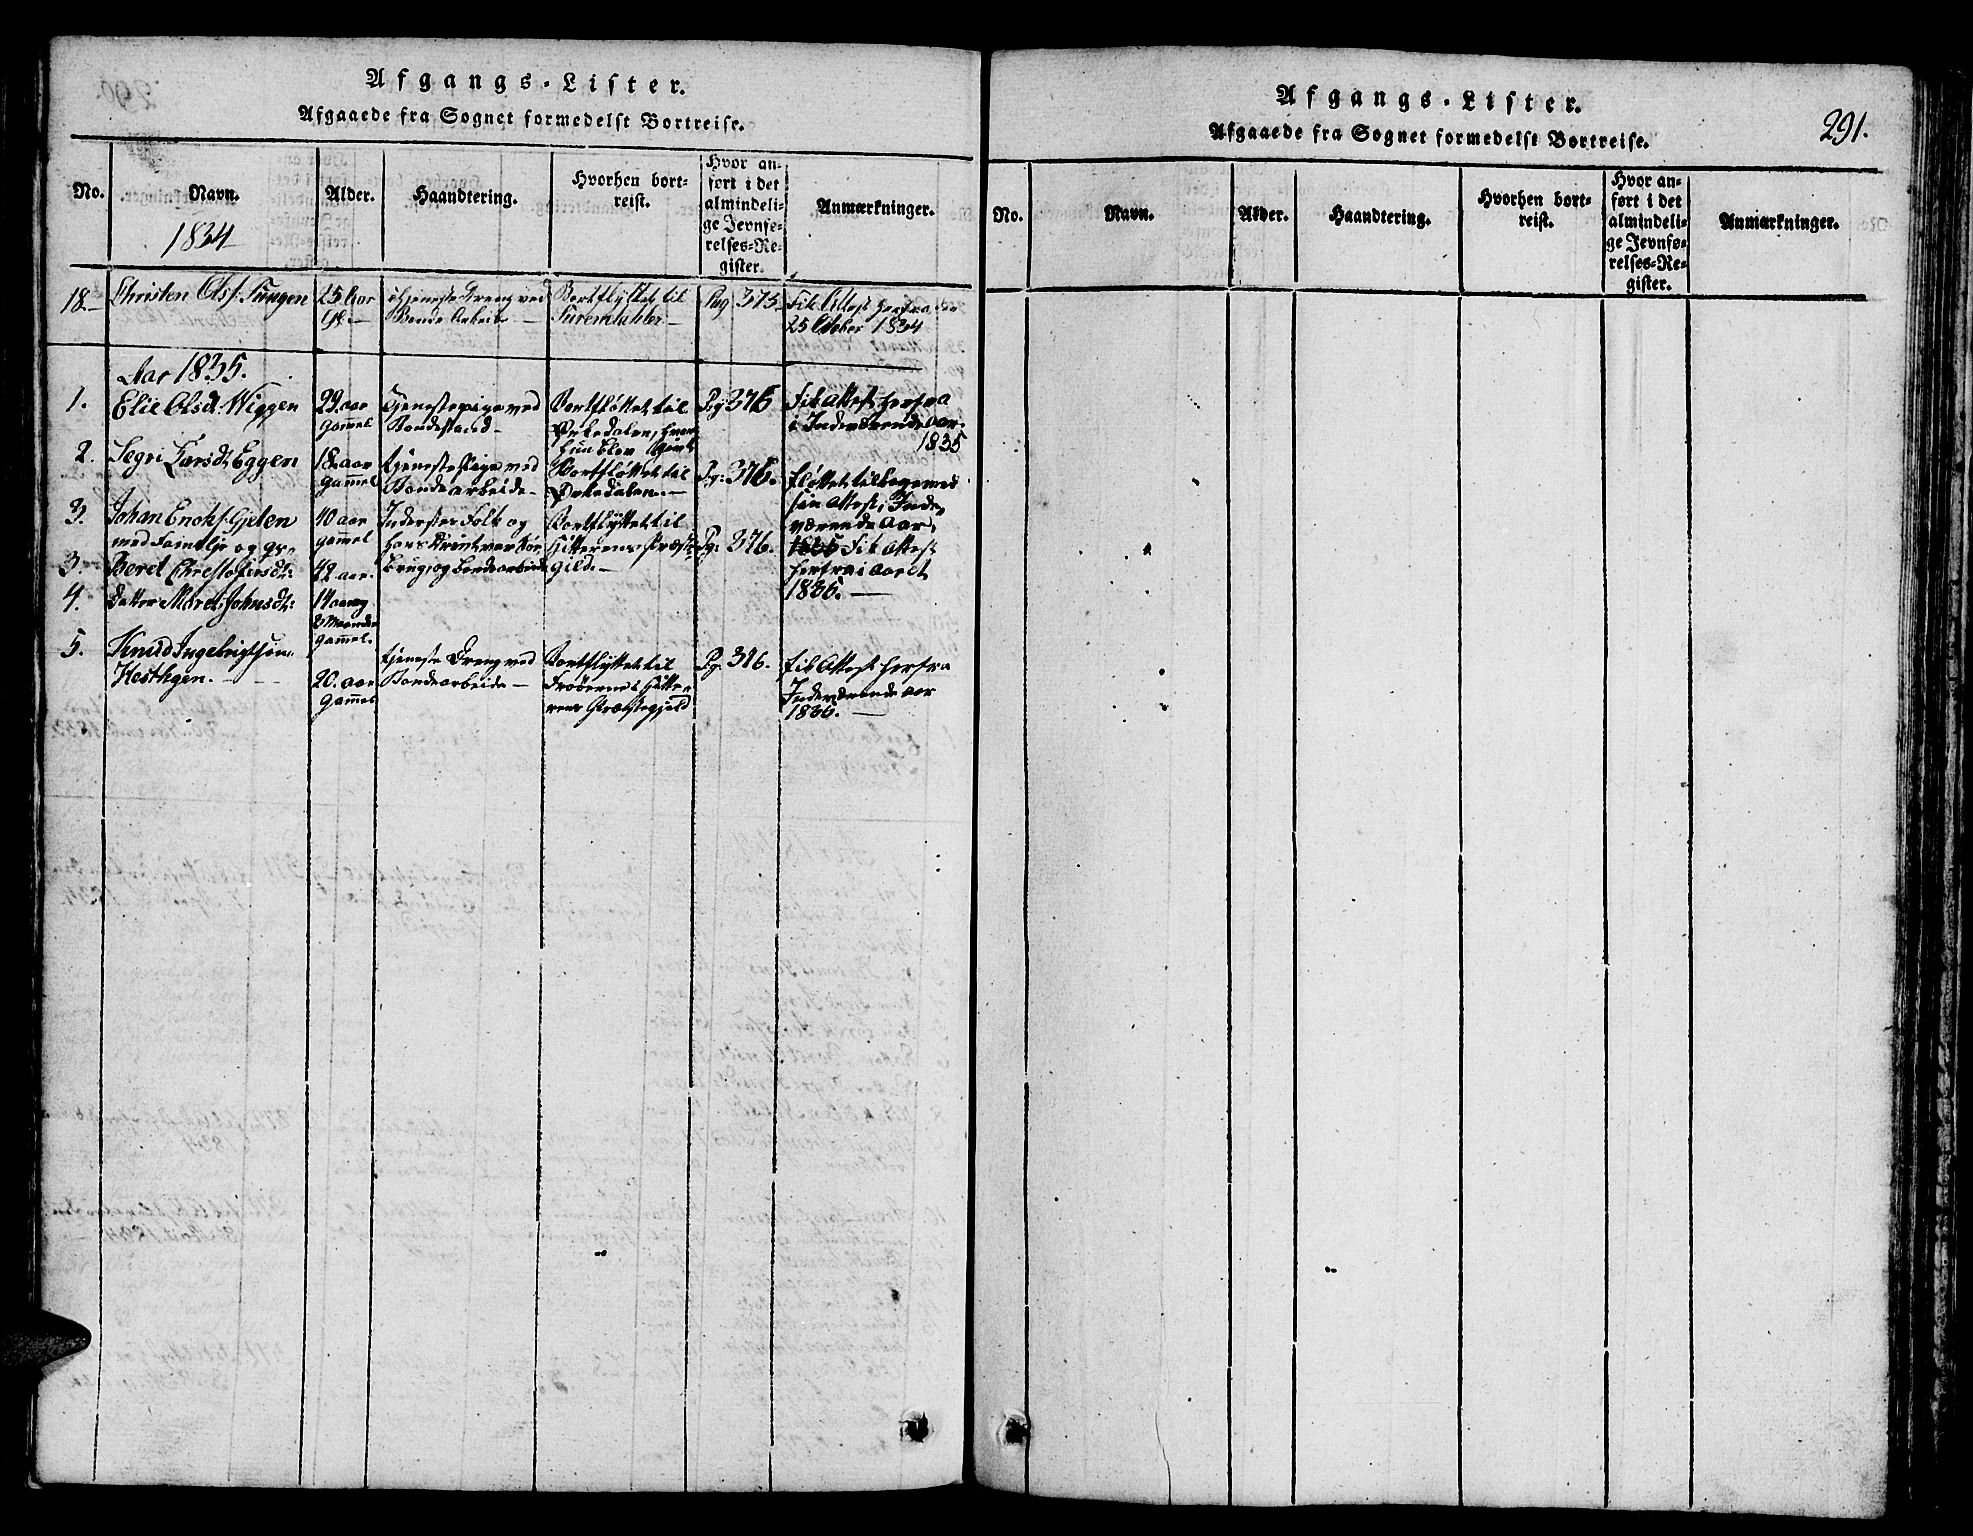 Afgangs-Lister.
Afgaaede fra Sognet formedelst Bortreise.
No.
Navn.
1834
Alder.
Haandtering.
Hvorhen bort-
reist.
Hvor an-
ført i det
almindeli-
ge Jevnfø-
relses-Re-
gister.
Anmærkninger.
18.
Christen Ols:
25 Aar
Gl.
tjeneste Dreng ved
Bonde Arbeide
Bortflyttet til
Surendahler
Pag 375
Fik Attest herfra den
25 October 1834
Aar 1835.
1.
Elie Olsdt: Wiggen
29. aar
gammel
Tjenestepige ved
Bondestand
Bortfløttet til
Ørkedalen, hvor
hun blev
Pg 376
Fik Attest herfra
i Indeværende aar.
1835
2.
Segri Larsdt Eggen
18. aar
gammel
tjeneste Pige ved
Bondearbeide
Bortfløttet til
Ørkedalen.
Pg: 376.
fløttet tilbage med
sin Attest, i Inde-
værende Aar,
3.
Johan Enoks: Gjelen
med Familje og
40 aar
gammel
Inderster Folk og
Bortflyttet til
Hitterens Præste-
gild.
Pg: 376.
1835 Fik Attest
herfra i Aaret
1835.
3.
Beret Christofersdt:
42 aar.
Brug, og bondearbeide
4.
Datter Maret Johnsdt:
14 aar og
8 Maaneder
gammel.
5.
Knud Ingebrigtsen
Hesthgen.
20. aar
gammel
tjeneste Dreng ved
Bondearbeide
Bortflyttet til
Frøierne i Hitte-
rens Præstegjeld
Pg. 376.
fik Attest herfra
Indeværende aar
1835.
Afgangs-Lister.
Afgaaede fra Sognet formedelst Bortreise.
291.
No.
Navn.
Alder.
Haandtering.
Hvorhen bort-
reist.
Hvor an-
ført i det
almindeli-
ge Jevnfø-
relses-Re-
gister.
Anmærkninger.